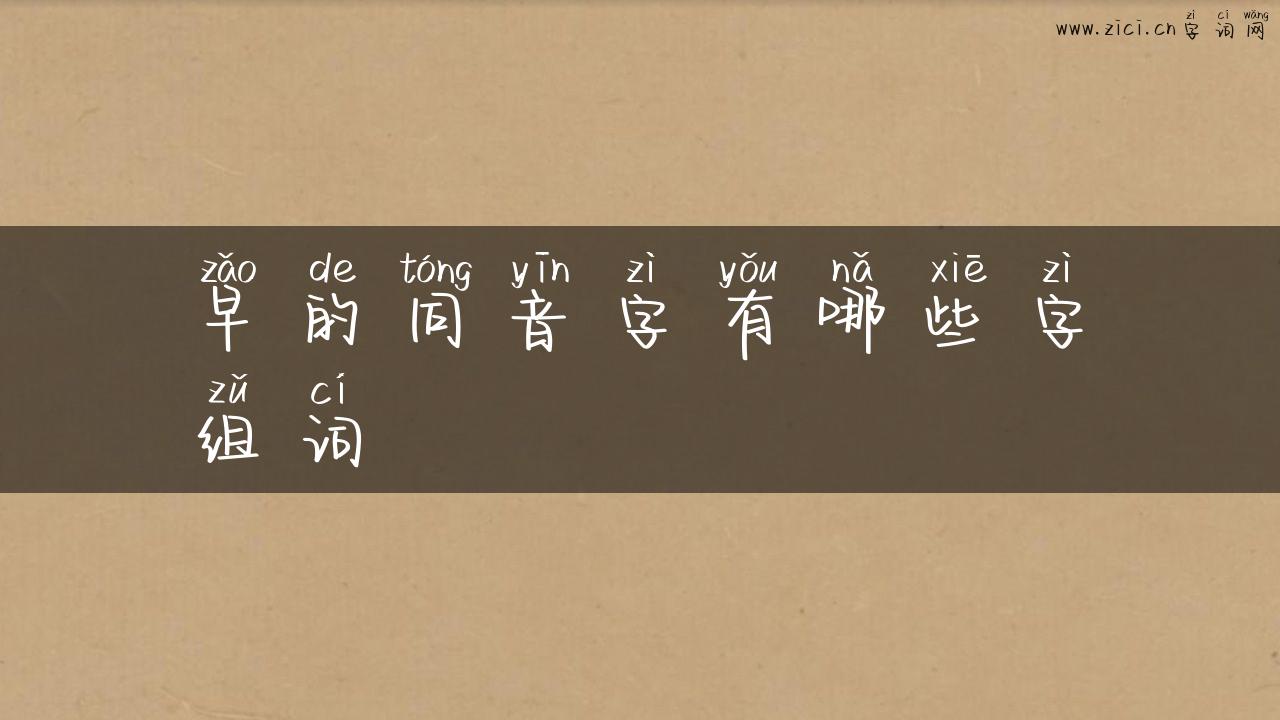 zì cí wǎng
www.zici.cn 字词网
zǎo de tóng yīn zì yǒu nǎ xiē zì
早的同音字有哪些字
zǔ cí
组词